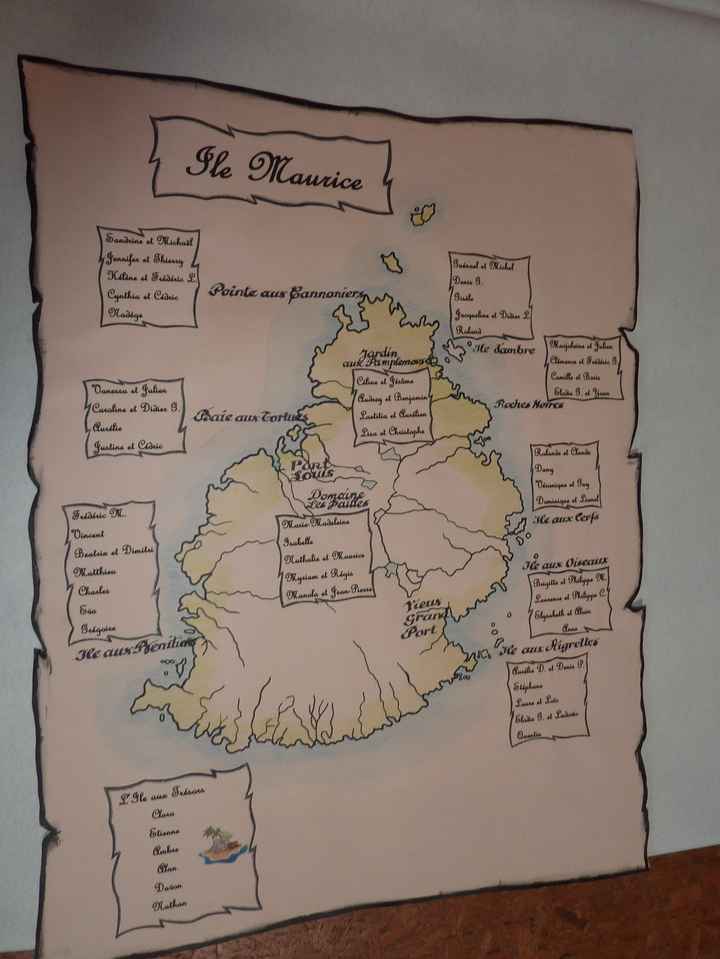 Ile Maurice
Sandrine et Michaël
Jennifer et Thierry
Hélène et Frédéric L.
Cynthia et Cédric
Nadège
Pointe aux Cannoniers
Gwénael et Michel
Denis G.
Gisèle
Jacqueline et Didier L.
Roland
Ile d'ambre
Marjolaine et Julien
Clémence et Frédéric G.
Camille et Boris
Elodie G. et Yoan
Roches Noires
Jardin
aux Pamplemousses
Céline et Jérôme
Audrey et Benjamin
Laetitia et Aurélien
Lise et Christophe
Vanessa et Julien
Caroline et Didier G.
Aurélie
Justine et Cédric
Baie aux Tortues
Port
Louis
Domaine
Les Pailles
Marie-Madeleine
Isabelle
Nathalie et Maurice
Myriam et Régis
Manola et Jean-Pierre
Rolande et Claude
Dany
Véronique et Guy
Dominique et Lionel
Ile aux Cerfs
Frédéric M.
Vincent
Beatrix et Dimitri
Matthieu
Charles
Eva
Grégoire
Ile aux Bénitiers
Ile aux Oiseaux
Brigitte et Philippe M.
Laurence et Philippe C.
Elyzabeth et Alain
Anne
Vieux
Grand
Port
Ile aux Aigrettes
Aurélie D. et Denis P.
Stéphane
Laure et Loïc
Elodie B. et Ludovic
Quentin
L'Ile aux Trésors
Clara
Etienne
Ambre
Alan
Dawon
Nathan